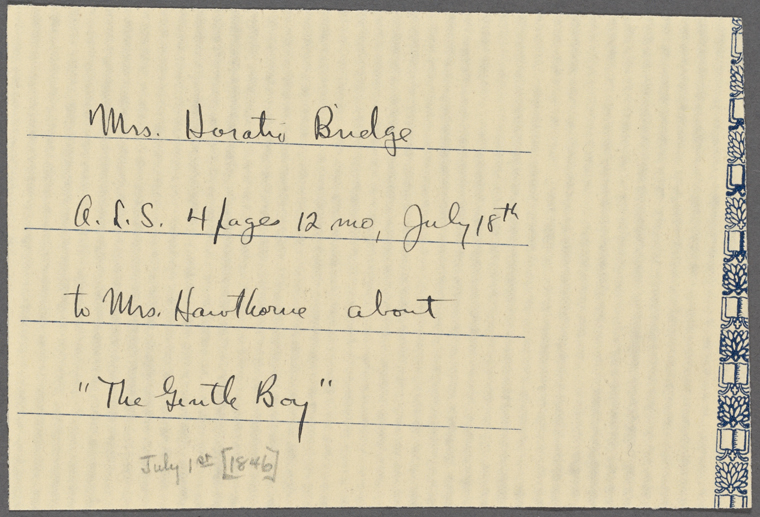 Mrs. Horatio Bridge
A.L.S. 4 pages 12 mo, July 18th
to Mrs. Hawthorne about
"The Gentle Boy"
July 1st [1846]